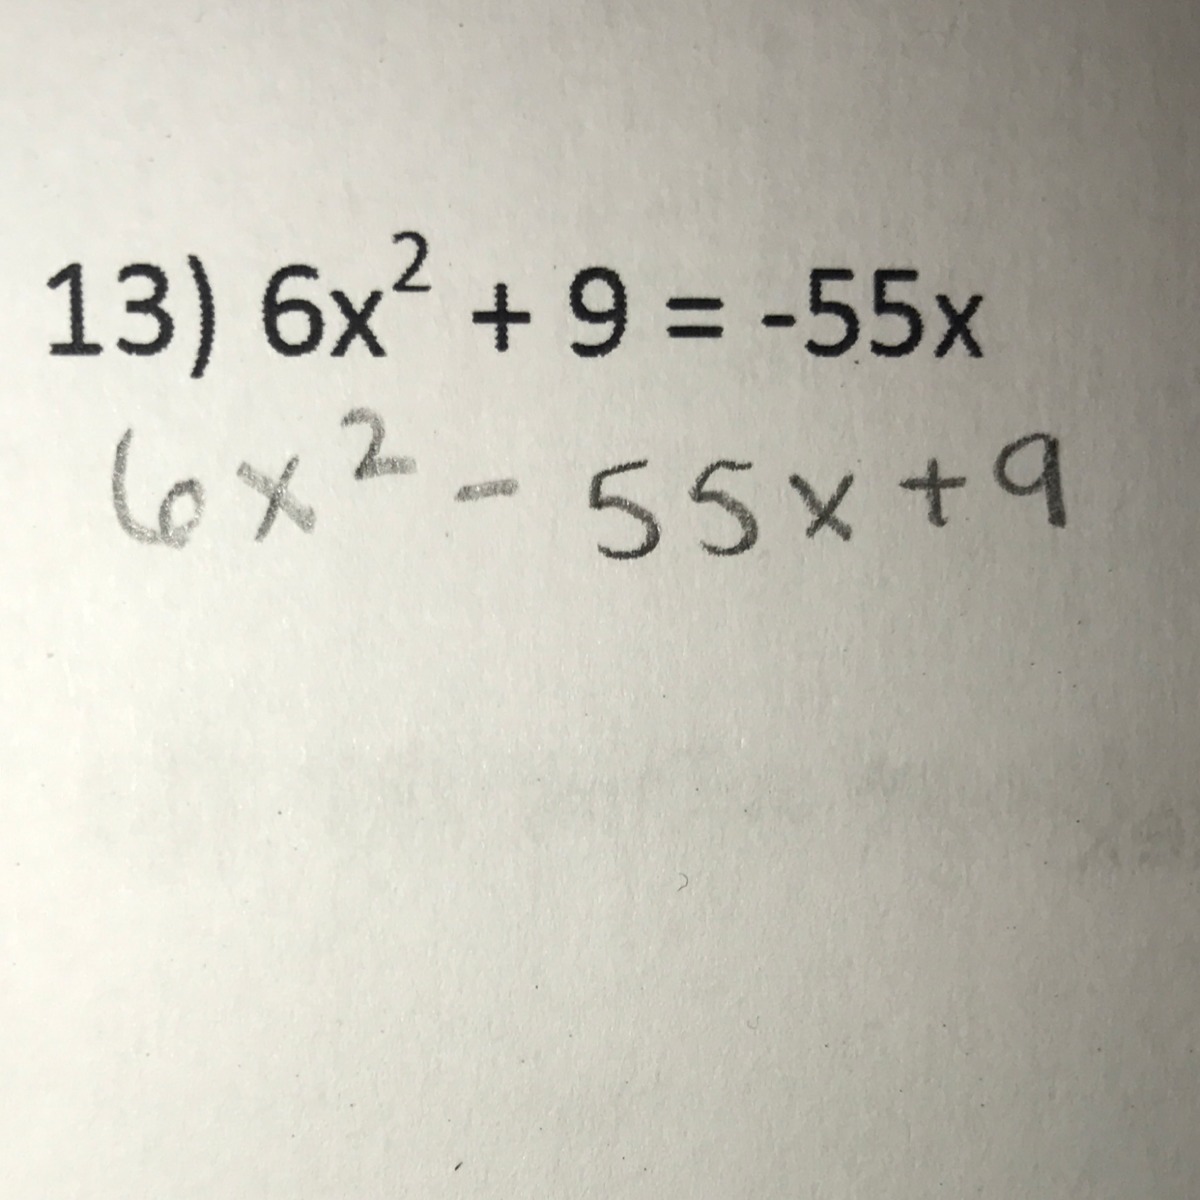 13) 6x² + 9 = -55x
6x² - 55x + 9